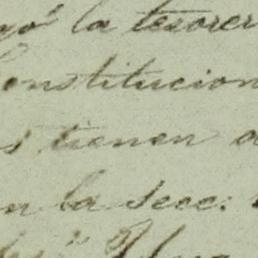 la tesorer
onstitucion
s tienen a
n la secc: